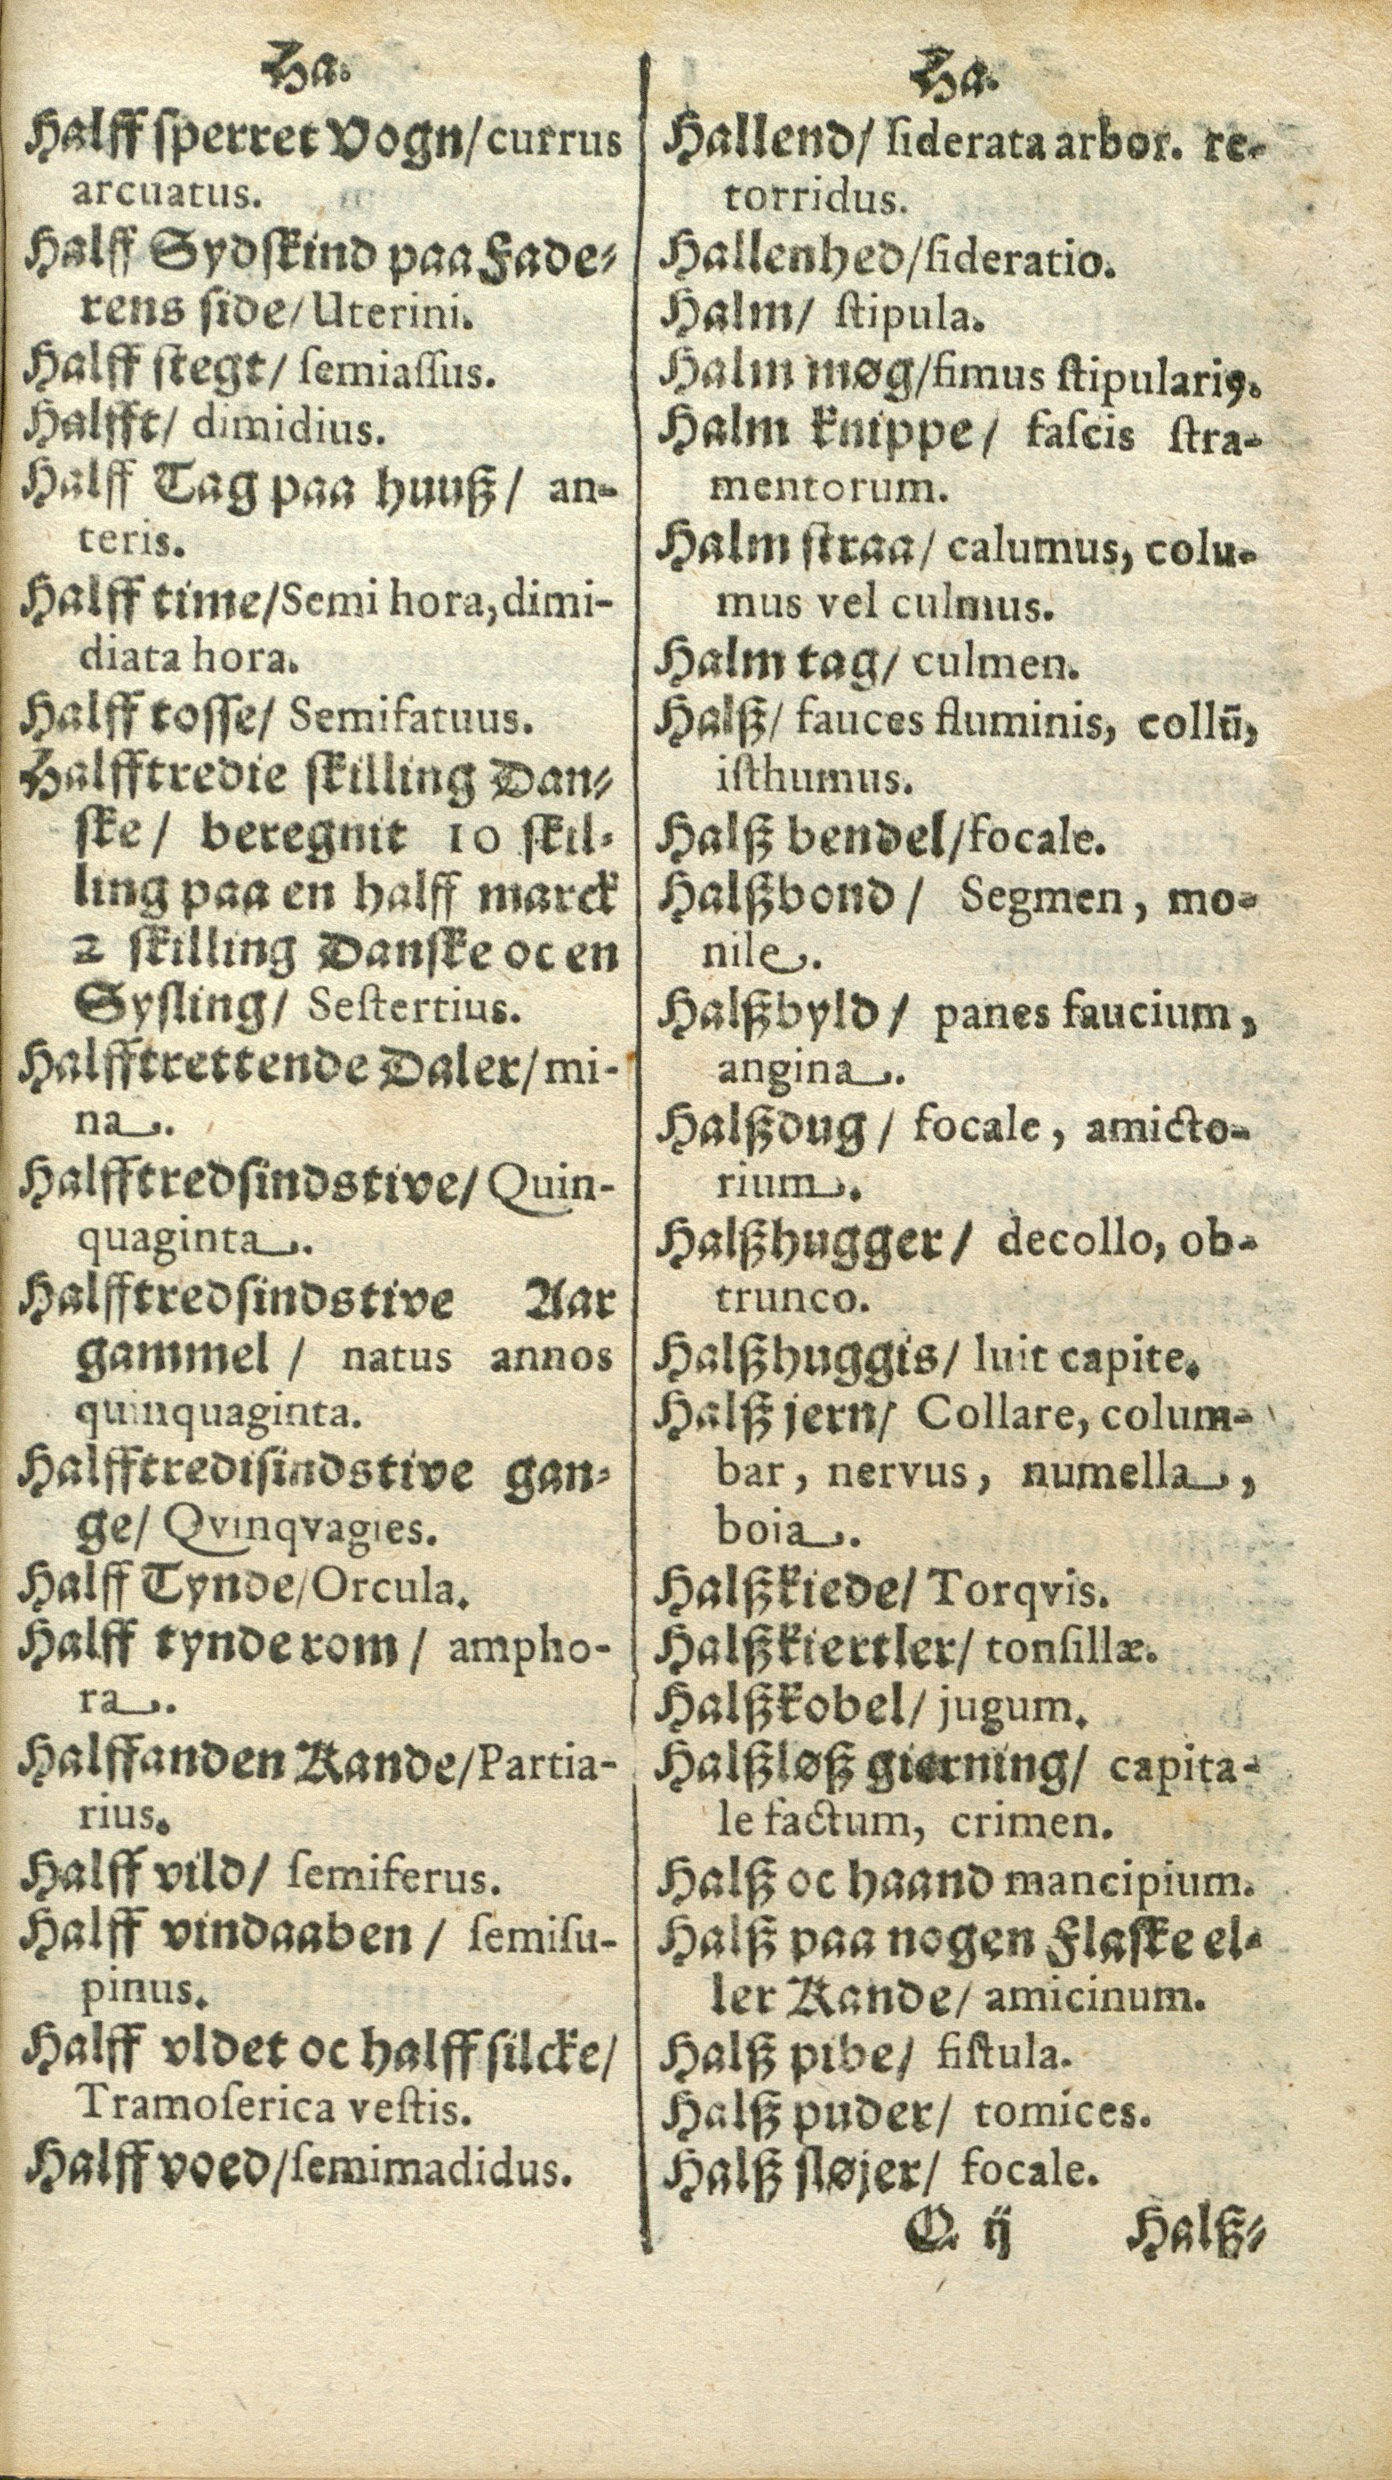 Ha.
Halff sperret Vogn/ currus
arcuatus.
Halff Sydskind paa Fade-
rens side/ Uterini.
Halff stegt/ semiassus.
Halfft/ dimidius.
Halff Tag paa huuß/ an-
teris.
Halff time/ Semi hora, dimi-
diata hora.
Halff tosse/ Semifatuus.
Halfftredie skilling Dan-
ske/ beregnit 10 skil-
ling paa en halff marck
2 skilling Danske oc en
Sysling/ Sestertius.
Halfftrettende Daler/ mi-
na.
Halfftredsindstive/ Quin-
quaginta.
Halfftredsindstive Aar
gammel / natus annos
quinquaginta.
Halfftredisindstive gan-
ge/ Qvinqvagies.
Halff Tynde/ Orcula.
Halff tynde rom / ampho-
ra.
Halffanden Kande/ Partia-
rius.
Halff vild/ semiferus.
Halff vindaaben / semisu-
pinus.
Halff vldet oc halff silcke/
Tramoserica vestis.
Halff voed/ semimadidus.
Ha.
Hallend/ siderata arbor. re-
torridus.
Hallenhed/ sideratio.
Halm/ stipula.
Halm møg/ fimus stipulariꝰ.
Halm knippe/ fascis stra-
mentorum.
Halm straa/ calumus, colu-
mus vel culmus.
Halm tag/ culmen.
Halß/ fauces fluminis, collū,
isthumus.
Halß bendel/ focale.
Halßbond / Segmen, mo-
nile.
Halßbyld / panes faucium,
angina.
Halßdug / focale, amicto-
rium.
Halßhugger / decollo, ob-
trunco.
Halßhuggis/ luit capite.
Halß jern/ Collare, colum-
bar, nervus, numella,
boia.
Halßkiede/ Torqvis.
Halßkiertler/ tonsillæ.
Halßkobel/ jugum.
Halßløß gierning/ capita-
le factum, crimen.
Halß oc haand mancipium.
Halß paa nogen Flaske el-
ler Kande/ amicinum.
Halß pibe/ fistula.
Halß puder/ tomices.
Halß sløjer/ focale.
O ij Halß-